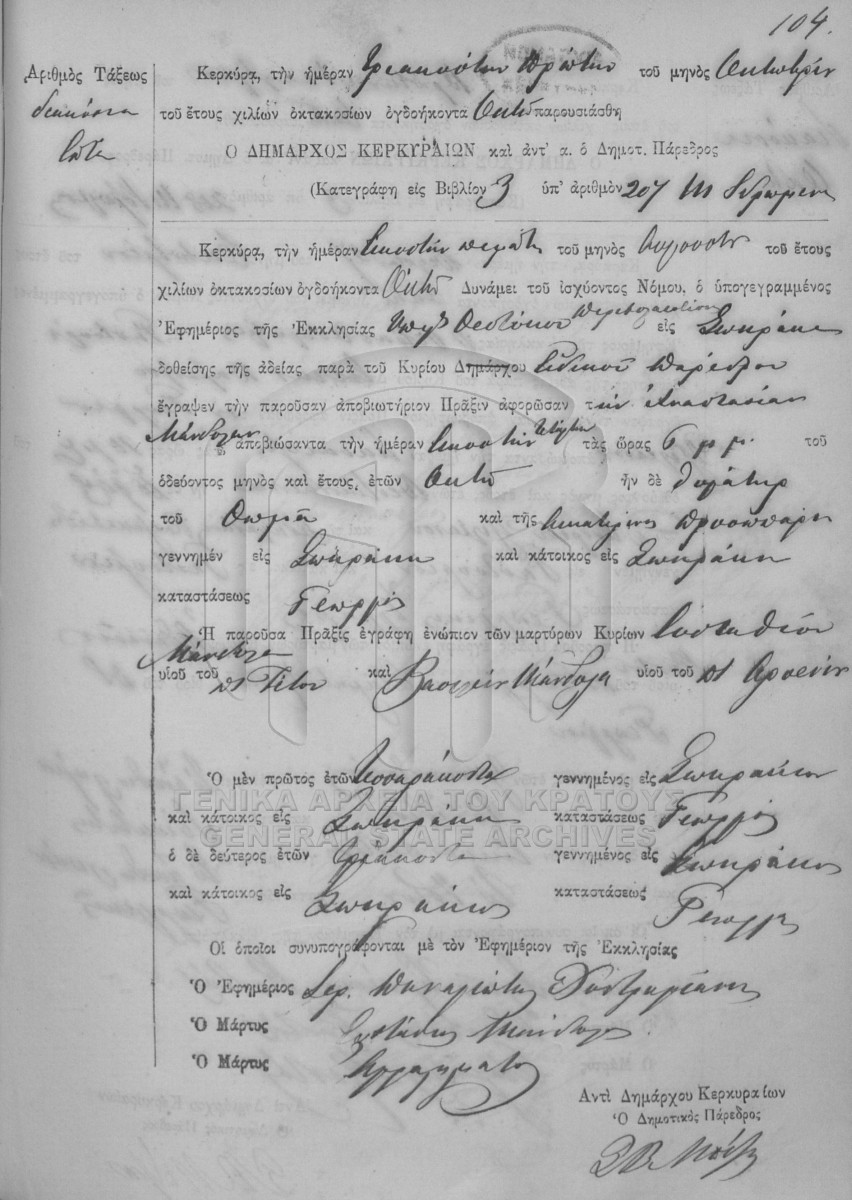 104.
Ἀριθμὸς Τάξεως
διακόσια
ἑπτά
Κερκύρα, τὴν ἡμέραν Τριακοστὴν Πρώτην τοῦ μηνὸς Ὀκτωβρίου
τοῦ ἔτους χιλίων ὀκτακοσίων ὀγδοήκοντα Ὀκτὼ παρουσιάσθη
Ὁ ΔΗΜΑΡΧΟΣ ΚΕΡΚΥΡΑΙΩΝ καὶ ἀντ' α. ὁ Δημοτ. Πάρεδρος
(Κατεγράφη εἰς Βιβλίον 3 ὑπ' ἀριθμὸν 207
Κερκύρα, τὴν ἡμέραν Εἰκοστὴν πέμπτην τοῦ μηνὸς Αὐγούστου τοῦ ἔτους
χιλίων ὀκτακοσίων ὀγδοήκοντα Ὀκτὼ Δυνάμει τοῦ ἰσχύοντος Νόμου, ὁ ὑπογεγραμμένος
Ἐφημέριος τῆς Ἐκκλησίας Ὑπερ. Θεοτόκου εἰς Σωκράκι
δοθείσης τῆς ἀδείας παρὰ τοῦ Κυρίου Δημάρχου Εἰδικοῦ Παρέδρου
ἔγραψεν τὴν παροῦσαν ἀποβιωτήριον Πρᾶξιν ἀφορῶσαν τὴν Ἀναστασίαν
Μάνδυλα ἀποβιώσαντα τὴν ἡμέραν Εἰκοστὴν τετάρτην τὰς ὥρας 6 μ.μ. τοῦ
ὁδεύοντος μηνὸς καὶ ἔτους, ἐτῶν Ὀκτὼ ἦν δὲ θυγάτηρ
τοῦ Θωμᾶ καὶ τῆς Αἰκατερίνης
γεννημέν εἰς Σωκράκι καὶ κάτοικος εἰς Σωκράκι
καταστάσεως Γεωργός
Ἡ παροῦσα Πρᾶξις ἐγράφη ἐνώπιον τῶν μαρτύρων Κυρίων Εὐσταθίου
Μάνδυλα
υἱοῦ τοῦ πτ Τίτου καὶ Βασιλείου Μάνδυλα υἱοῦ τοῦ πτ Ἀρσενίου
Ὁ μὲν πρῶτος ἐτῶν Τεσσαράκοντα γεννημένος εἰς Σωκράκι
καὶ κάτοικος εἰς Σωκράκι καταστάσεως Γεωργός
ὁ δὲ δεύτερος ἐτῶν Τριάκοντα γεννημένος εἰς Σωκράκι
καὶ κάτοικος εἰς Σωκράκι καταστάσεως Γεωργός
Οἱ ὁποῖοι συνυπογράφονται μὲ τὸν Ἐφημέριον τῆς Ἐκκλησίας
Ὁ Ἐφημέριος Ἱερ. Παναγιώτης
Ὁ Μάρτυς Εὐστάθιος Μάνδυλας
Ὁ Μάρτυς Ἀγράμματος
Ἀντὶ Δημάρχου Κερκυραίων
Ὁ Δημοτικὸς Πάρεδρος
ΓΕΝΙΚΑ ΑΡΧΕΙΑ ΤΟΥ ΚΡΑΤΟΥΣ
GENERAL STATE ARCHIVES